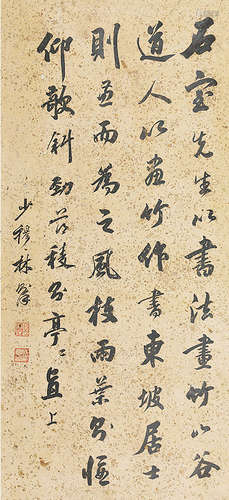 石室先生以書法畫竹山谷
道人以畫竹作書東坡居士
則並而為之風枝雨葉則偃
仰欹斜勁節稜則亭亭直上
少穆林